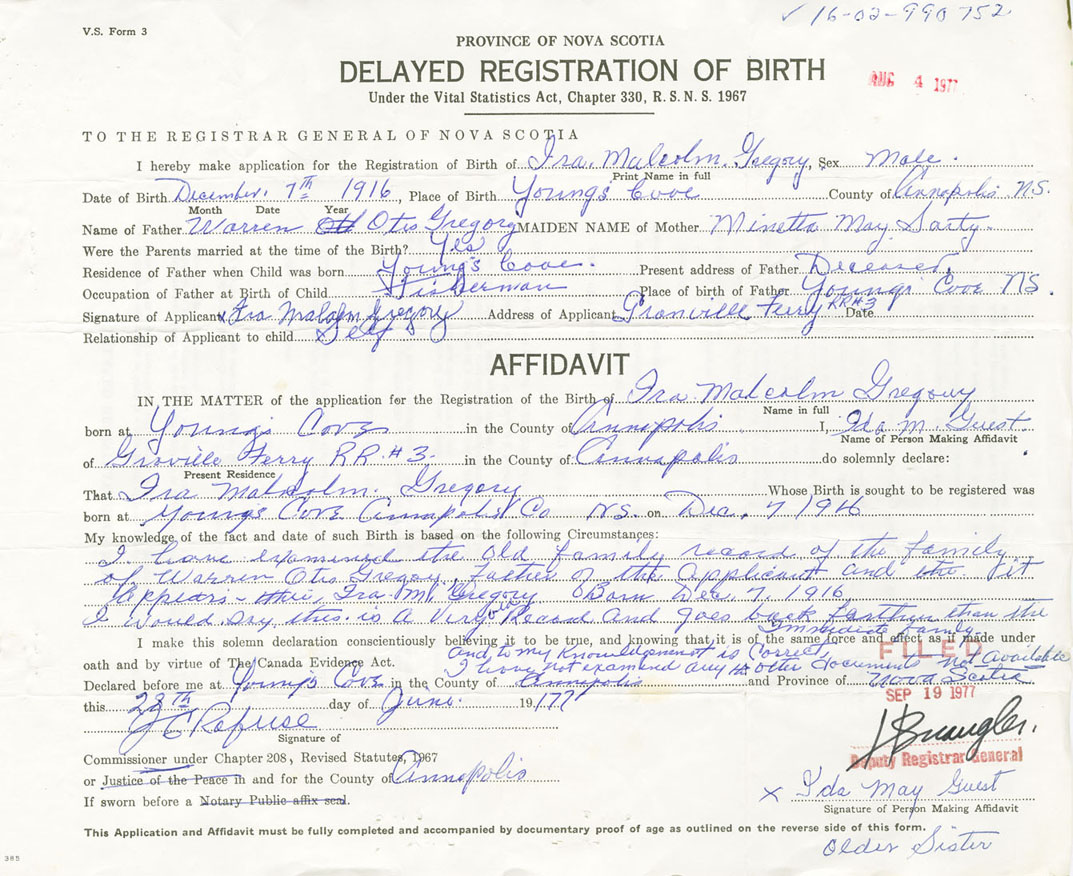 ✓ 16-02-990752
V.S. Form 3
PROVINCE OF NOVA SCOTIA
DELAYED REGISTRATION OF BIRTH
AUG 4 1977
Under the Vital Statistics Act, Chapter 330, R.S.N.S. 1967
TO THE REGISTRAR GENERAL OF NOVA SCOTIA
I hereby make application for the Registration of Birth of Ira. Malcolm. Gregory, Sex Male.
Print Name in full
Date of Birth December. 7th 1916, Place of Birth Young's Cove County of Annapolis N.S.
Month Date Year
Name of Father Warren Otis Gregory MAIDEN NAME of Mother Minetta May. Sarty.
Were the Parents married at the time of the Birth? Yes
Residence of Father when Child was born Young's Cove. Present address of Father Deceased.
Occupation of Father at Birth of Child Fisherman Place of birth of Father Youngs Cove NS.
Signature of Applicant x Ira Malcolm Gregory Address of Applicant Granville Ferry RR#3 Date
Relationship of Applicant to child Self
AFFIDAVIT
IN THE MATTER of the application for the Registration of the Birth of Ira Malcolm Gregory
Name in full
born at Young's Cove in the County of Annapolis I, Ida M. Guest
Name of Person Making Affidavit
of Granville Ferry RR#3. in the County of Annapolis do solemnly declare:
Present Residence
That Ira Malcolm. Gregory Whose Birth is sought to be registered was
born at Youngs Cove Annapolis Co NS. on Dec. 7 1916
My knowledge of the fact and date of such Birth is based on the following Circumstances:
I have examined the old family record of the family
of Warren Otis Gregory, father of the applicant and it
appears Ira M. Gregory Born Dec 7. 1916
I Would say this is A Very old Record And goes back farther than the
Immediate family
I make this solemn declaration conscientiously believing it to be true, and knowing that it is of the same force and effect as if made under
and to my Knowledge is Correct,
FILED
oath and by virtue of The Canada Evidence Act.
I have not examined any other documents not available
Declared before me at Young's Cove in the County of Annapolis and Province of Nova Scotia
SEP 19 1977
this 28th day of June 1977
Signature of
Commissioner under Chapter 208, Revised Statutes, 1967
Deputy Registrar General
or Justice of the Peace in and for the County of Annapolis
x Ida May Guest
If sworn before a Notary Public affix seal.
Signature of Person Making Affidavit
This Application and Affidavit must be fully completed and accompanied by documentary proof of age as outlined on the reverse side of this form.
Older Sister
385